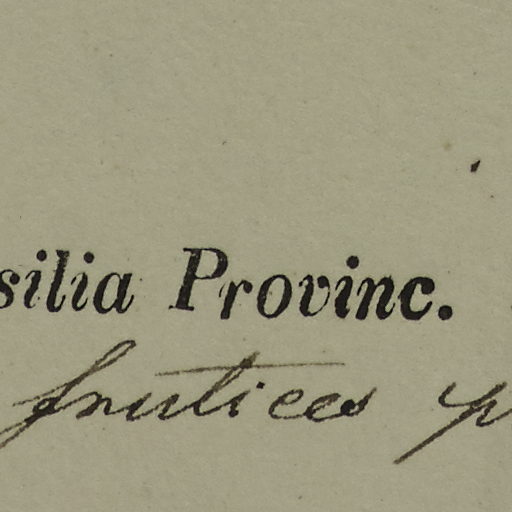 silia Provinc.
frutices p